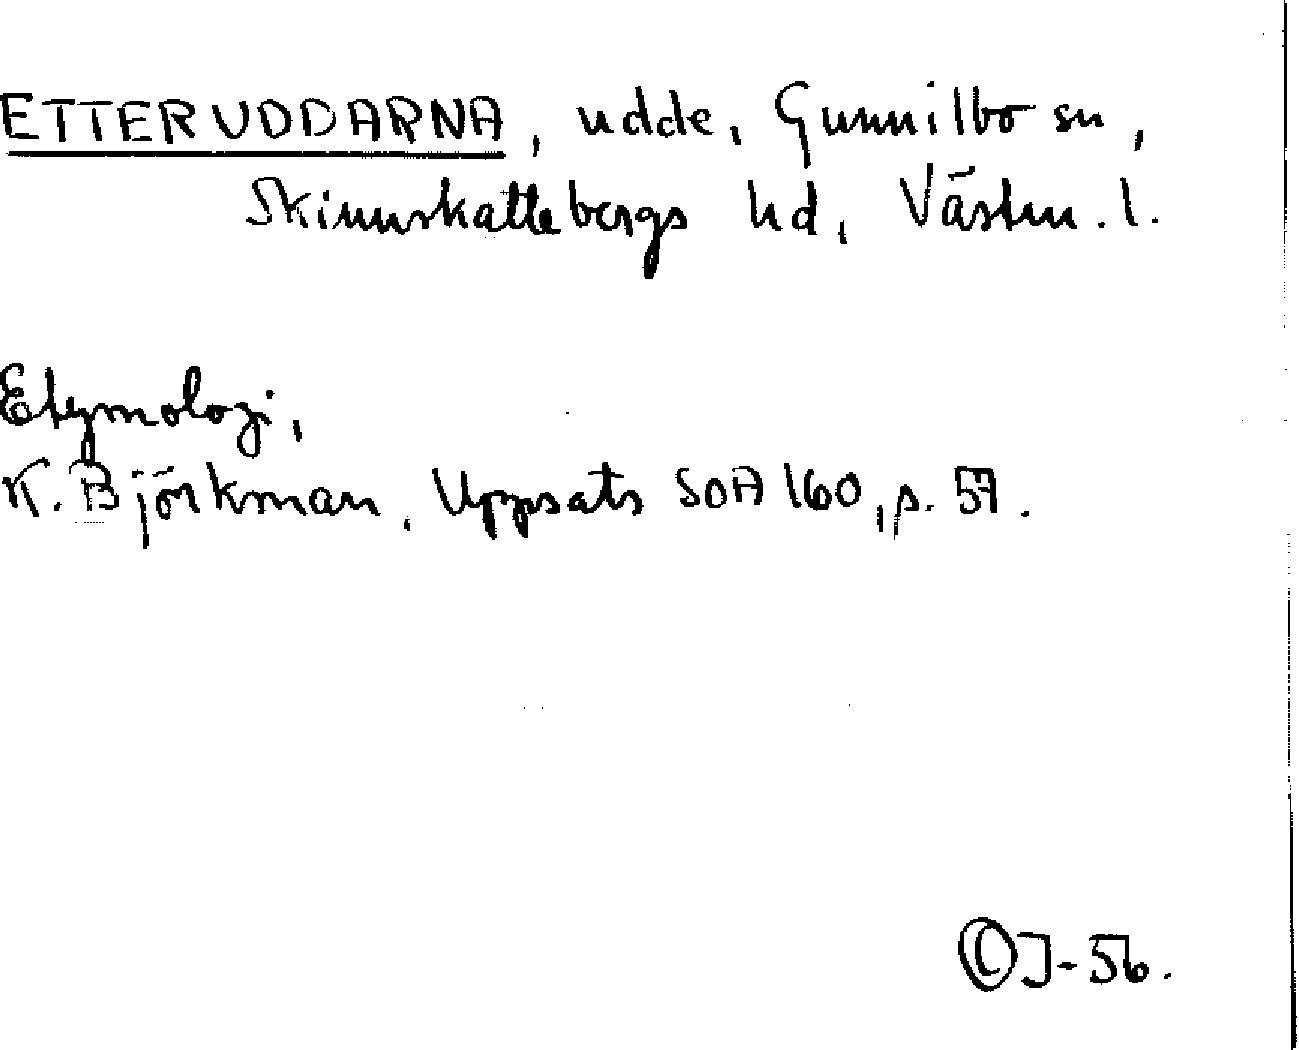 ETTERUDDARNA, udde, Gunnilbo sn,
Skinnskattebergs hd, Västm. l.
Etymologi,
K. Björkman, Uppsats SOA 160, s. 57.
©J-56.